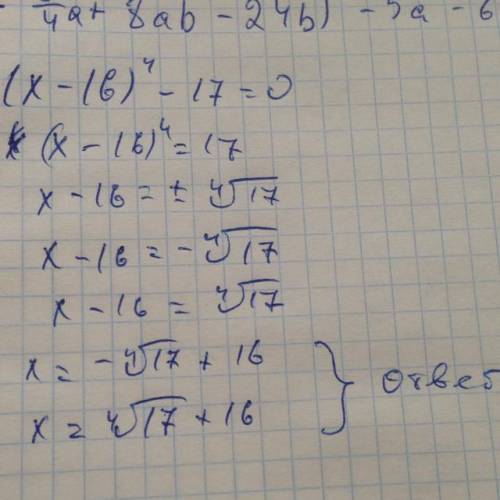 4a + 8ab - 24b) - 5a - 6
(x - 16)⁴ - 17 = 0
(x - 16)⁴ = 17
x - 16 = ± ⁴√17
x - 16 = - ⁴√17
x - 16 = ⁴√17
x = - ⁴√17 + 16
x = ⁴√17 + 16 } ответ